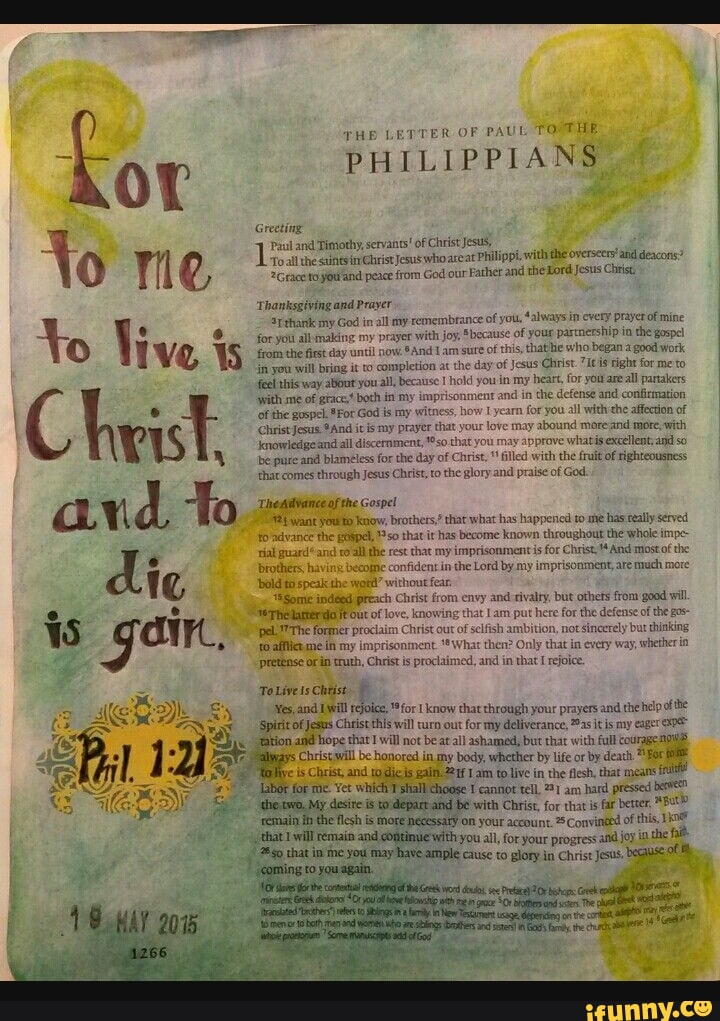 for
to me
to live is
Christ,
and to
die
is gain.
Phil. 1:21
19 MAY 2015
1266
THE LETTER OF PAUL TO THE
PHILIPPIANS
Greeting
1 Paul and Timothy, servants¹ of Christ Jesus,
To all the saints in Christ Jesus who are at Philippi, with the overseers² and deacons:³
²Grace to you and peace from God our Father and the Lord Jesus Christ.
Thanksgiving and Prayer
³I thank my God in all my remembrance of you, ⁴always in every prayer of mine
for you all making my prayer with joy, ⁵because of your partnership in the gospel
from the first day until now. ⁶And I am sure of this, that he who began a good work
in you will bring it to completion at the day of Jesus Christ. ⁷It is right for me to
feel this way about you all, because I hold you in my heart, for you are all partakers
with me of grace,⁴ both in my imprisonment and in the defense and confirmation
of the gospel. ⁸For God is my witness, how I yearn for you all with the affection of
Christ Jesus. ⁹And it is my prayer that your love may abound more and more, with
knowledge and all discernment, ¹⁰so that you may approve what is excellent, and so
be pure and blameless for the day of Christ, ¹¹filled with the fruit of righteousness
that comes through Jesus Christ, to the glory and praise of God.
The Advance of the Gospel
¹²I want you to know, brothers,⁵ that what has happened to me has really served
to advance the gospel, ¹³so that it has become known throughout the whole impe-
rial guard⁶ and to all the rest that my imprisonment is for Christ. ¹⁴And most of the
brothers, having become confident in the Lord by my imprisonment, are much more
bold to speak the word⁷ without fear.
¹⁵Some indeed preach Christ from envy and rivalry, but others from good will.
¹⁶The latter do it out of love, knowing that I am put here for the defense of the gos-
pel. ¹⁷The former proclaim Christ out of selfish ambition, not sincerely but thinking
to afflict me in my imprisonment. ¹⁸What then? Only that in every way, whether in
pretense or in truth, Christ is proclaimed, and in that I rejoice.
To Live Is Christ
Yes, and I will rejoice, ¹⁹for I know that through your prayers and the help of the
Spirit of Jesus Christ this will turn out for my deliverance, ²⁰as it is my eager expec-
tation and hope that I will not be at all ashamed, but that with full courage now as
always Christ will be honored in my body, whether by life or by death. ²¹For to me
to live is Christ, and to die is gain. ²²If I am to live in the flesh, that means fruitful
labor for me. Yet which I shall choose I cannot tell. ²³I am hard pressed between
the two. My desire is to depart and be with Christ, for that is far better. ²⁴But to
remain in the flesh is more necessary on your account. ²⁵Convinced of this, I know
that I will remain and continue with you all, for your progress and joy in the
²⁶so that in me you may have ample cause to glory in Christ Jesus, because of
coming to you again.
¹Or slaves (for the contextual rendering of the Greek word doulos, see Preface) ²Or bishops; Greek episkopoi ³Or servants, or
ministers; Greek diakonoi ⁴Or you all have fellowship with me in grace ⁵Or brothers and sisters. The plural Greek word adelphoi
(translated "brothers") refers to siblings in a family. In New Testament usage, depending on the context, adelphoi may refer either
to men or to both men and women who are siblings (brothers and sisters) in God's family, the church; also verse 14 ⁶Greek in the
whole praetorium ⁷Some manuscripts add of God
ifunny.co